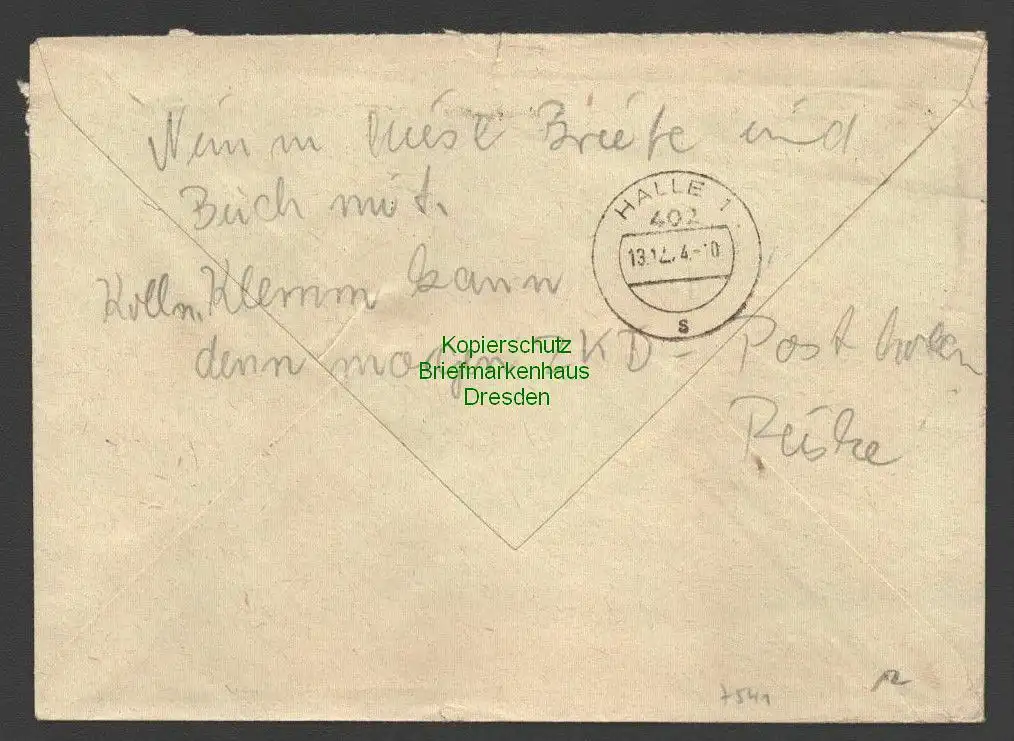 Nimm diese Briefe und
Buch mit.
HALLE 1
402
13.12. 4.-10
s
Kolln. Klemm kann
denn morgen ZKD - Post holen
Kopierschutz
Briefmarkenhaus
Dresden
7541